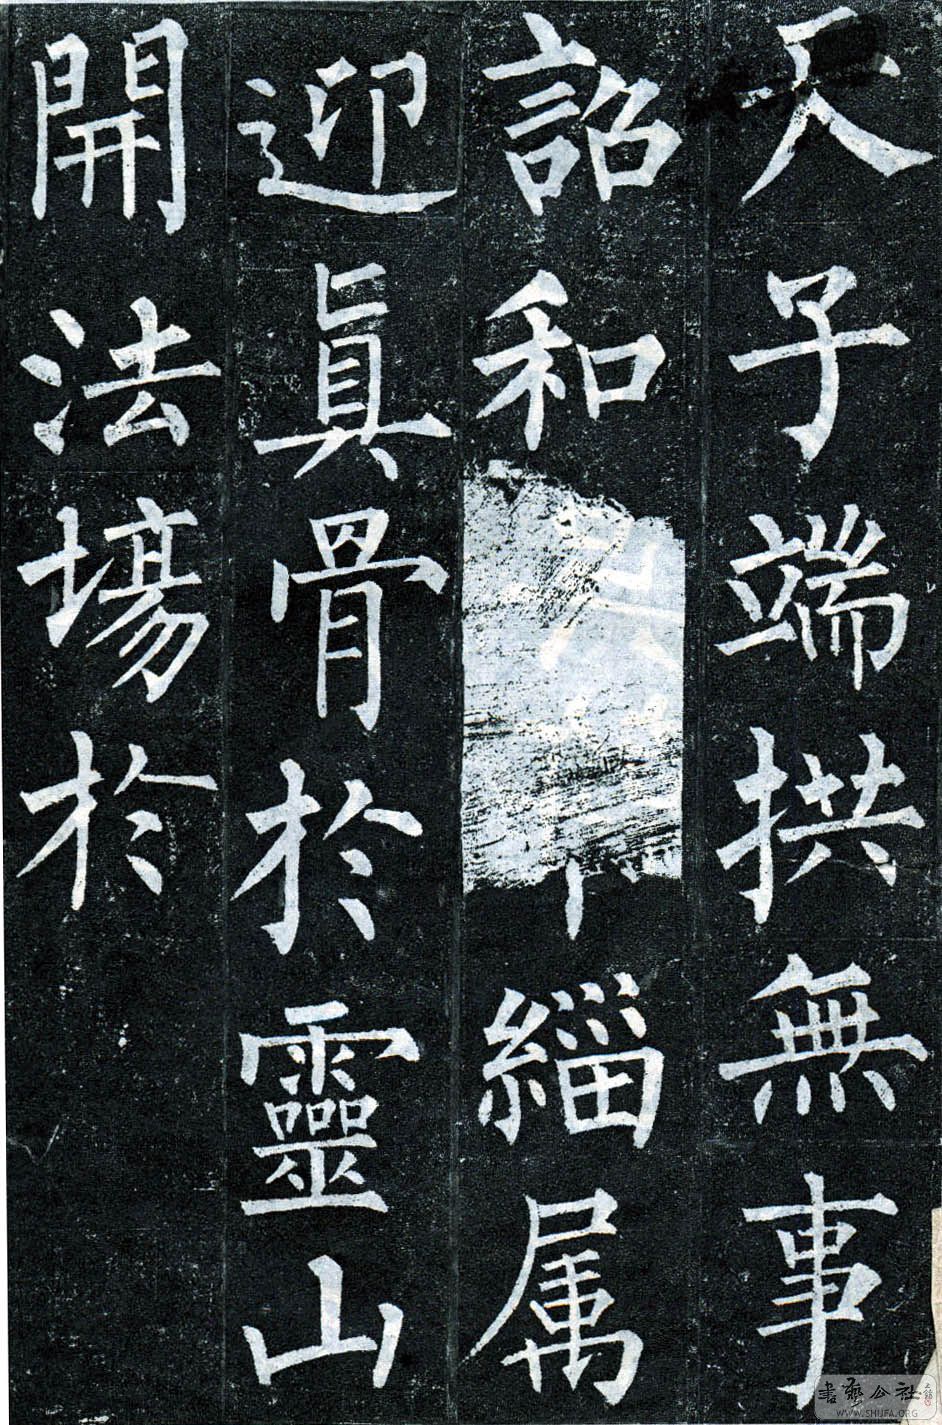 天子端拱無事
詔和緇属
迎眞骨於靈山
開法塲於
書藝公社
WWW.SHUFA.ORG